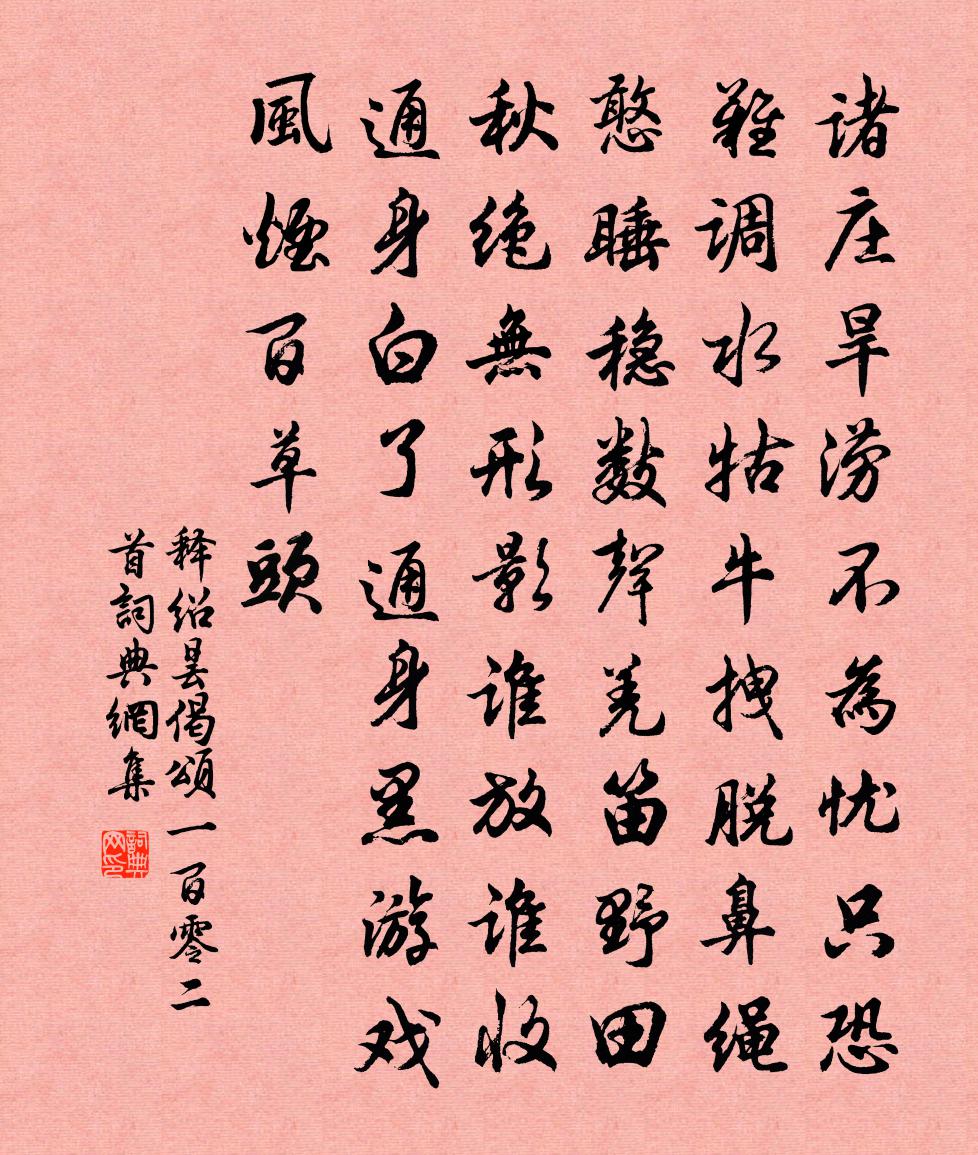 诸庄旱涝不為忧只恐
難调水牯牛拽脱鼻绳
憨睡稳数聲羌笛野田
秋绝無形影谁放谁收
通身白了通身黑游戏
風煙百草頭
释绍昙偈頌一百零二
首詞典網集
詞典网印